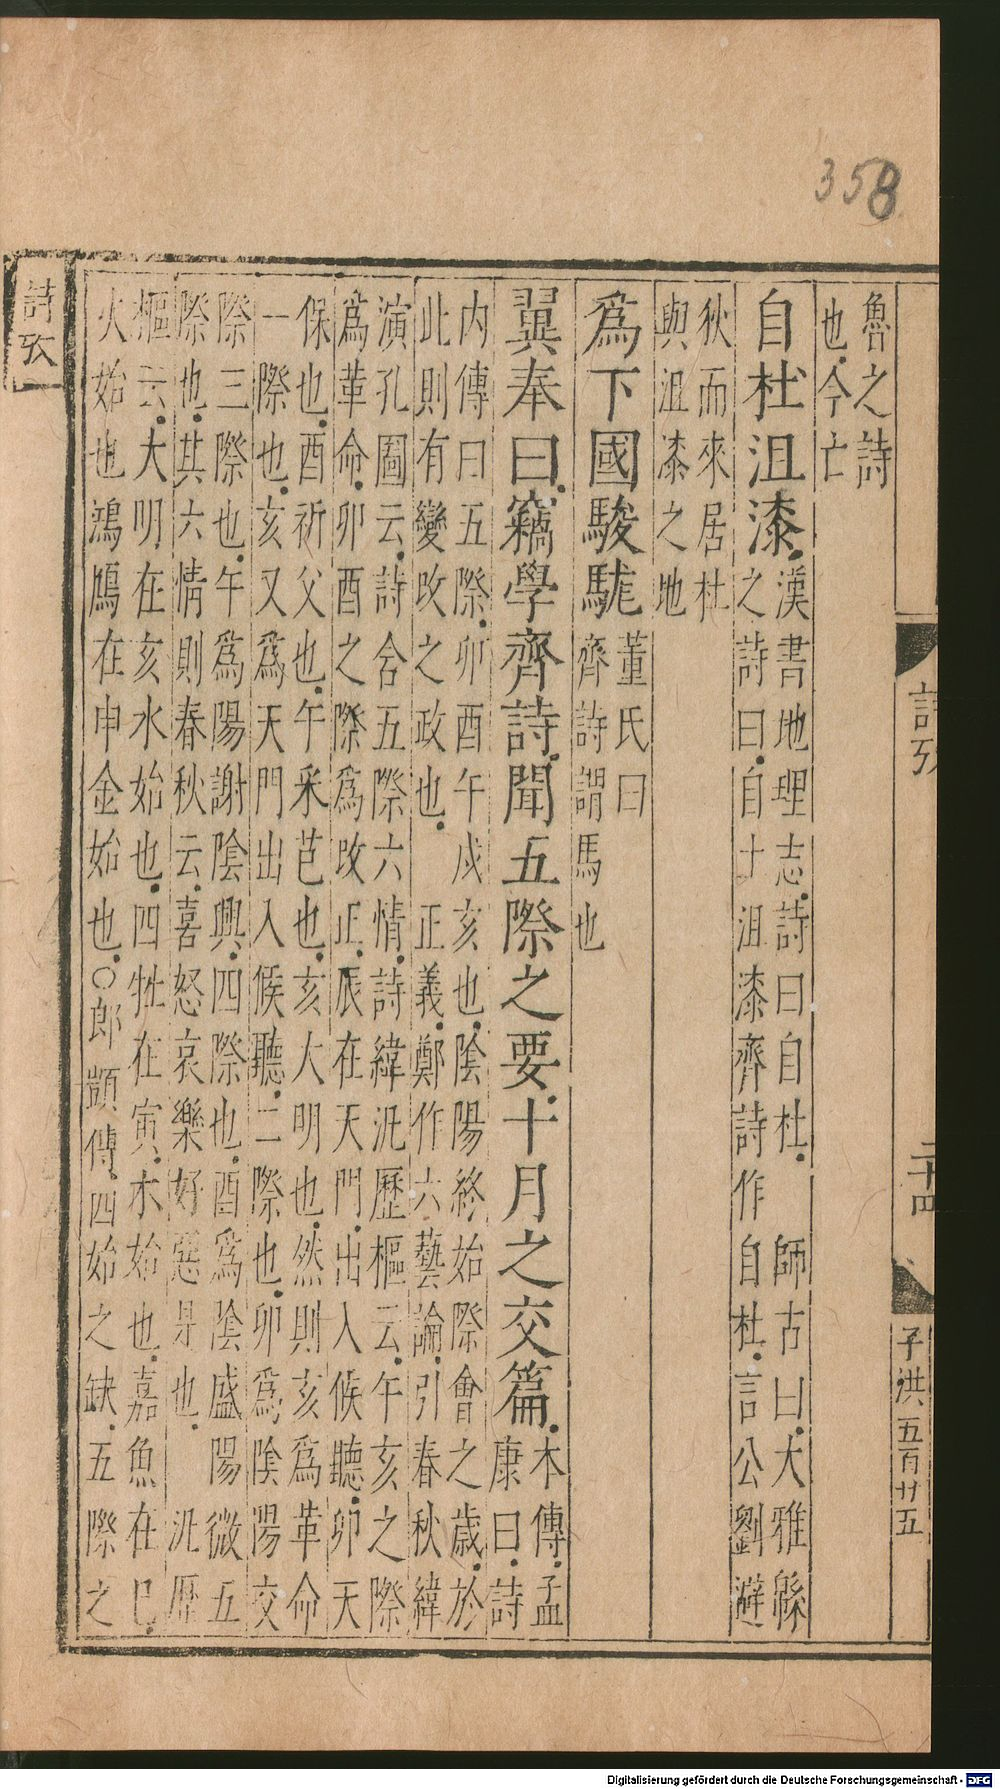 358
魯之詩
也今亡
自杜沮漆漢書地理志詩曰自杜 師古曰大雅緜
之詩曰自土沮漆齊詩作自杜言公劉避
狄而來居杜
與沮漆之地
爲下國駿駹董氏曰
齊詩謂馬也
翼奉曰竊學齊詩聞五際之要十月之交篇本傳孟
康曰詩
内傳曰五際卯酉午戌亥也陰陽終始際會之歲於
此則有變攺之政也 正義鄭作六藝論引春秋緯
演孔圖云詩含五際六情詩緯汎歷樞云午亥之際
爲革命卯酉之際爲攺正辰在天門出入候聽卯天
保也酉祈父也午采芑也亥大明也然則亥爲革命
一際也亥又爲天門出入候聽二際也卯爲陰陽交
際三際也午爲陽謝陰興四際也酉爲陰盛陽微五
際也其六情則春秋云喜怒哀樂好惡是也 汎歷
樞云大明在亥水始也四牡在寅木始也嘉魚在巳
火始也鴻鴈在申金始也○郎顗傳四始之缺五際之
詩攷
詩攷
二十四
子洪
五百廿五
Digitalisierung gefördert durch die Deutsche Forschungsgemeinschaft - DFG